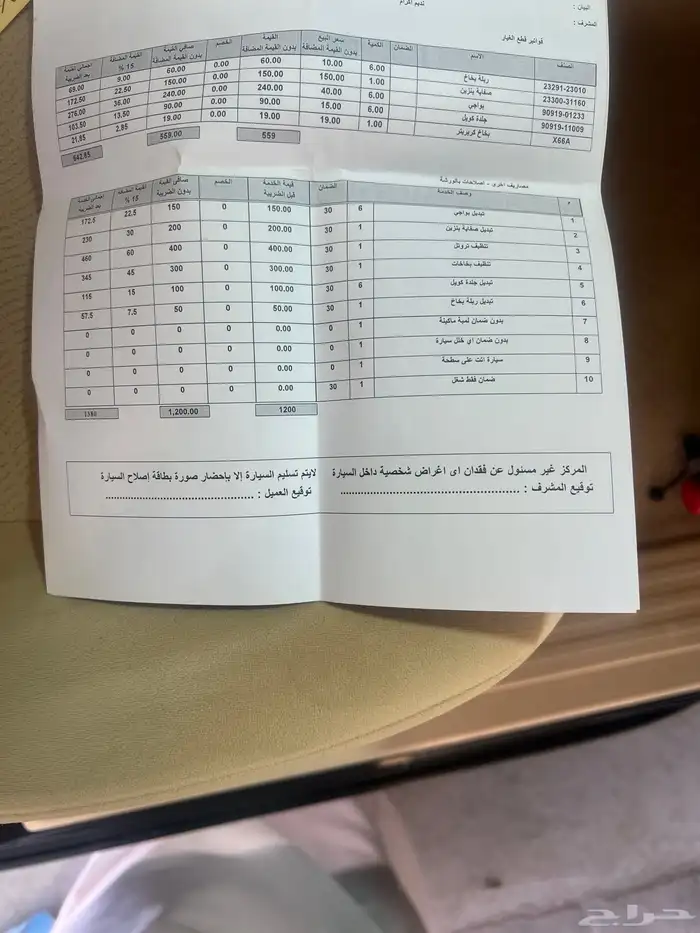 البيان : نديم اكرام
المشرف :
فواتير قطع الغيار
الصنف الاسم الضمان الكمية سعر البيع بدون القيمة المضافة القيمة بدون القيمة المضافة الخصم صافي القيمة بدون القيمة المضافة القيمة المضافة 15 % اجمالي القيمة بعد الضريبة
23291-23010 ربلة بخاخ 6.00 10.00 60.00 0.00 60.00 9.00 69.00
23300-31160 صفاية بنزين 1.00 150.00 150.00 0.00 150.00 22.50 172.50
90919-01233 بواجي 6.00 40.00 240.00 0.00 240.00 36.00 276.00
90919-11009 جلدة كويل 6.00 15.00 90.00 0.00 90.00 13.50 103.50
X66A بخاخ كربريتر 1.00 19.00 19.00 0.00 19.00 2.85 21.85
559 559.00 642.85
مصاريف اخرى - اصلاحات بالورشة
م وصف الخدمة الضمان قيمة الخدمة قبل الضريبة الخصم صافي القيمة بدون الضريبة القيمة المضافة 15 % اجمالي القيمة بعد الضريبة
1 تبديل بواجي 6 30 150.00 0 150 22.5 172.5
2 تبديل صفاية بنزين 1 30 200.00 0 200 30 230
3 تنظيف ثروتل 1 30 400.00 0 400 60 460
4 تنظيف بخاخات 1 30 300.00 0 300 45 345
5 تبديل جلدة كويل 6 30 100.00 0 100 15 115
6 تبديل ربلة بخاخ 1 30 50.00 0 50 7.5 57.5
7 بدون ضمان لمبة ماكينة 1 0 0.00 0 0 0 0
8 بدون ضمان اي خلل سيارة 1 0 0.00 0 0 0 0
9 سيارة اتت على سطحة 1 0 0.00 0 0 0 0
10 ضمان فقط شغل 1 30 0.00 0 0 0 0
1200 1,200.00 1380
المركز غير مسئول عن فقدان اى اغراض شخصية داخل السيارة لايتم تسليم السيارة إلا بإحضار صورة بطاقة إصلاح السيارة
توقيع المشرف : .................................................... توقيع العميل : ............................................
حراج